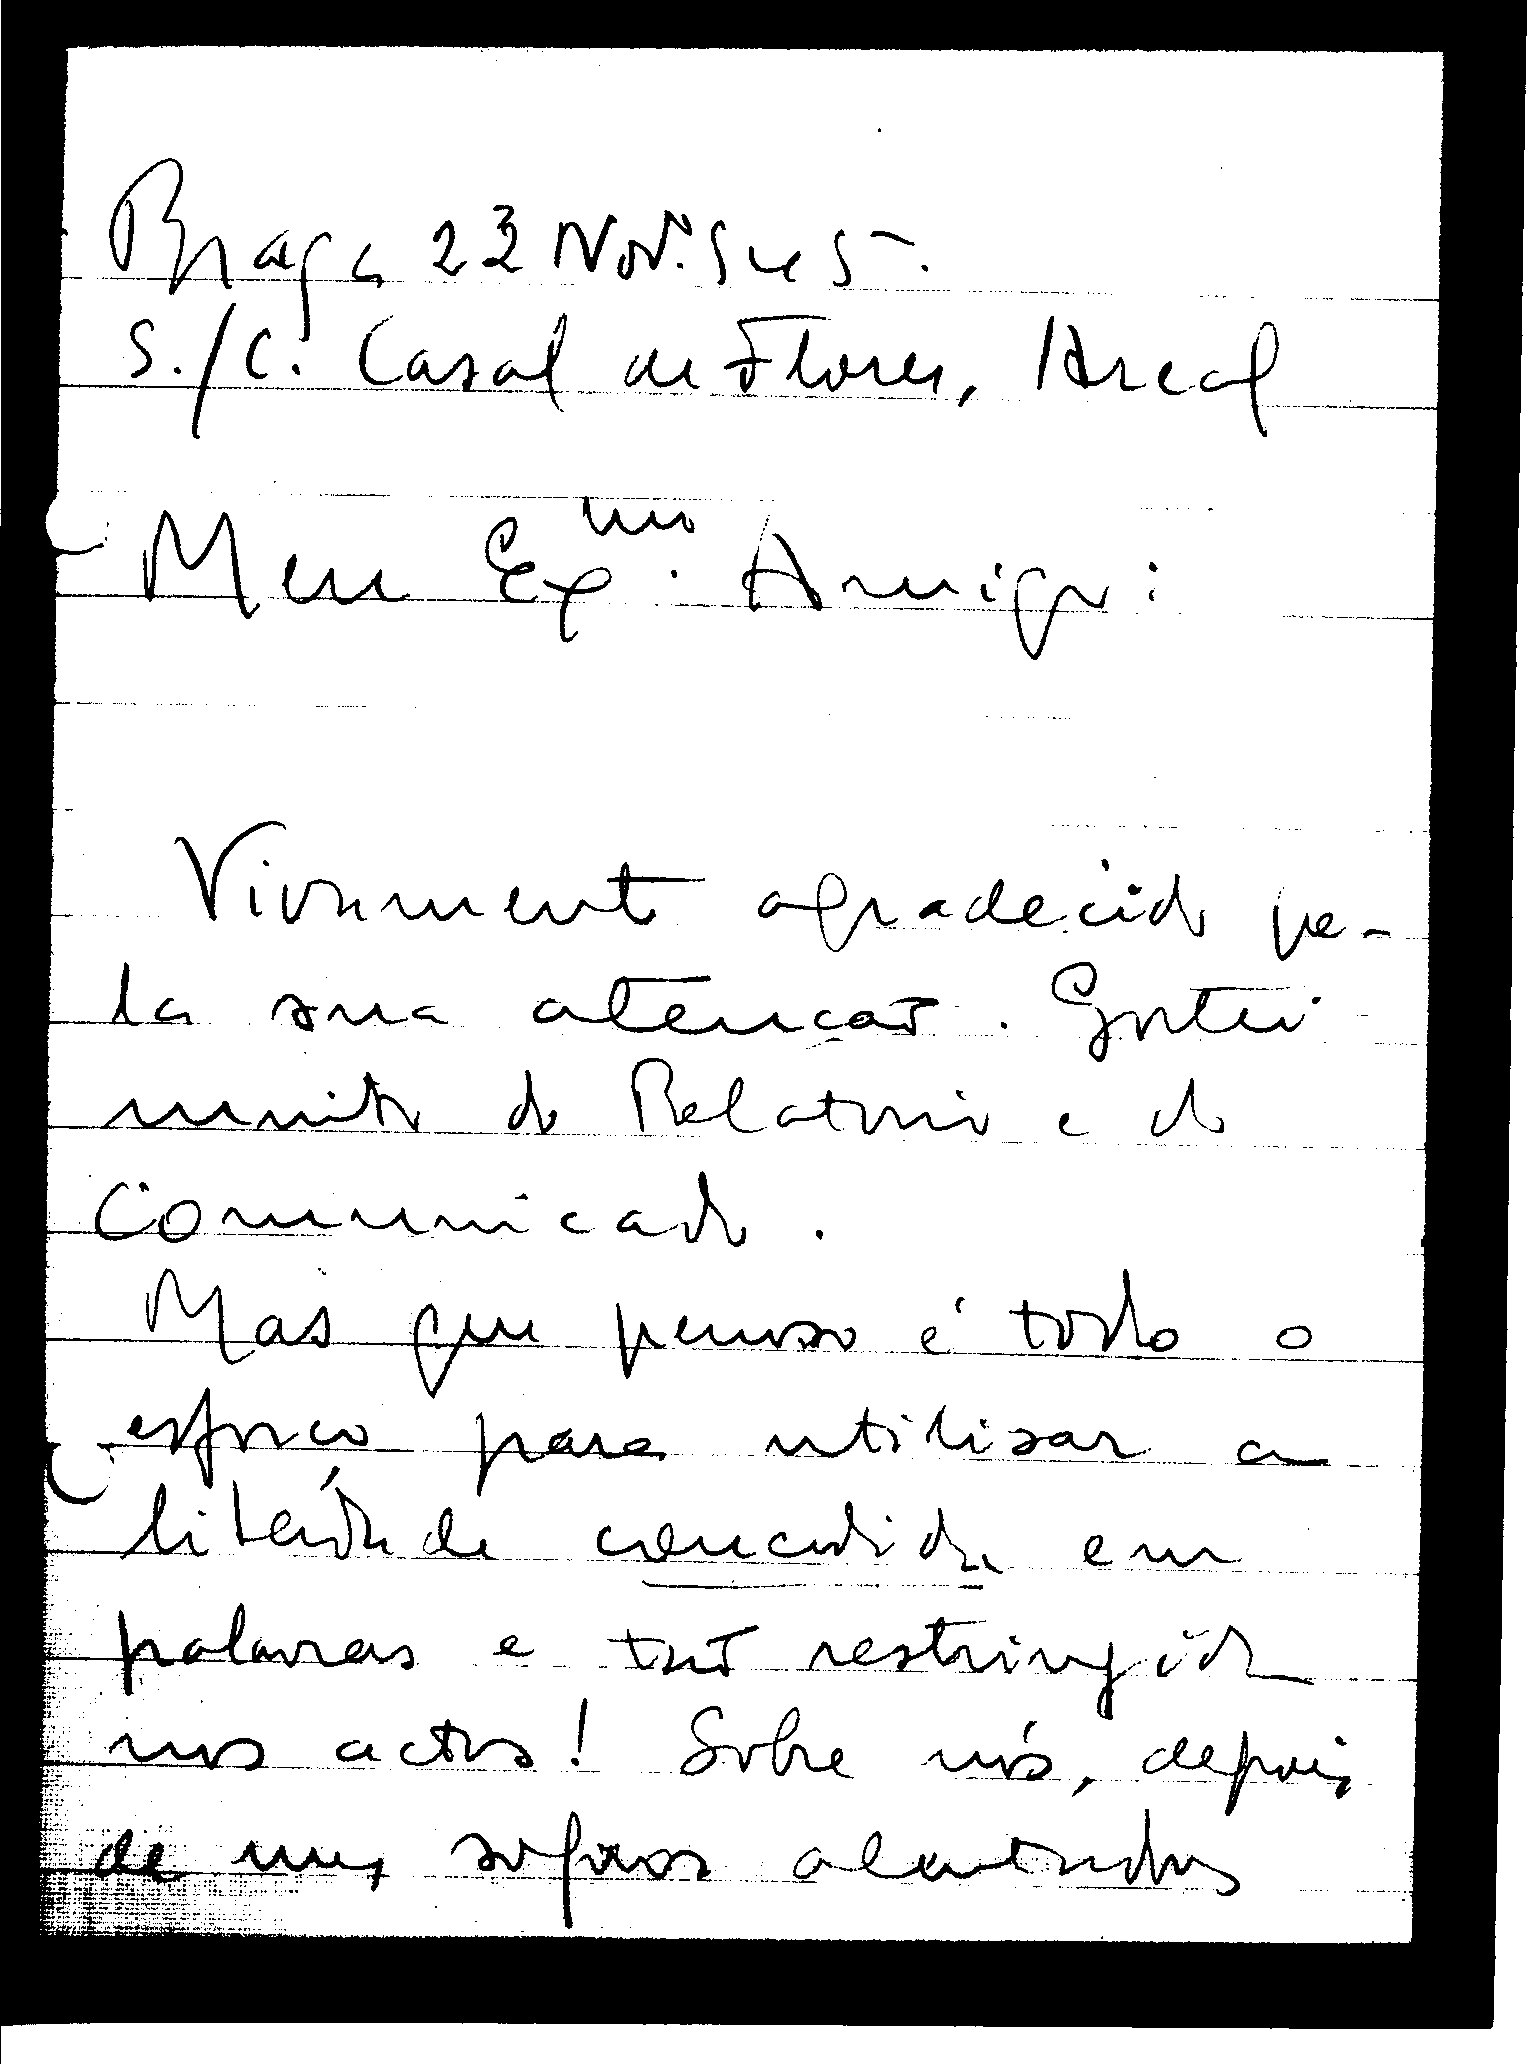 Braga 22 Nov. 945.
S./C. Casal de Flores, Areal
Meu Exmo. Amigo:
Vivamente agradecido pe-
la sua atenção. Gostei
muito do Relatorio e do
Comunicado.
Mas que penoso é todo o
esforço para utilisar a
liberdade concedida em
palavras e tão restringida
nos actos! Sobre nós, depois
de uns sopros